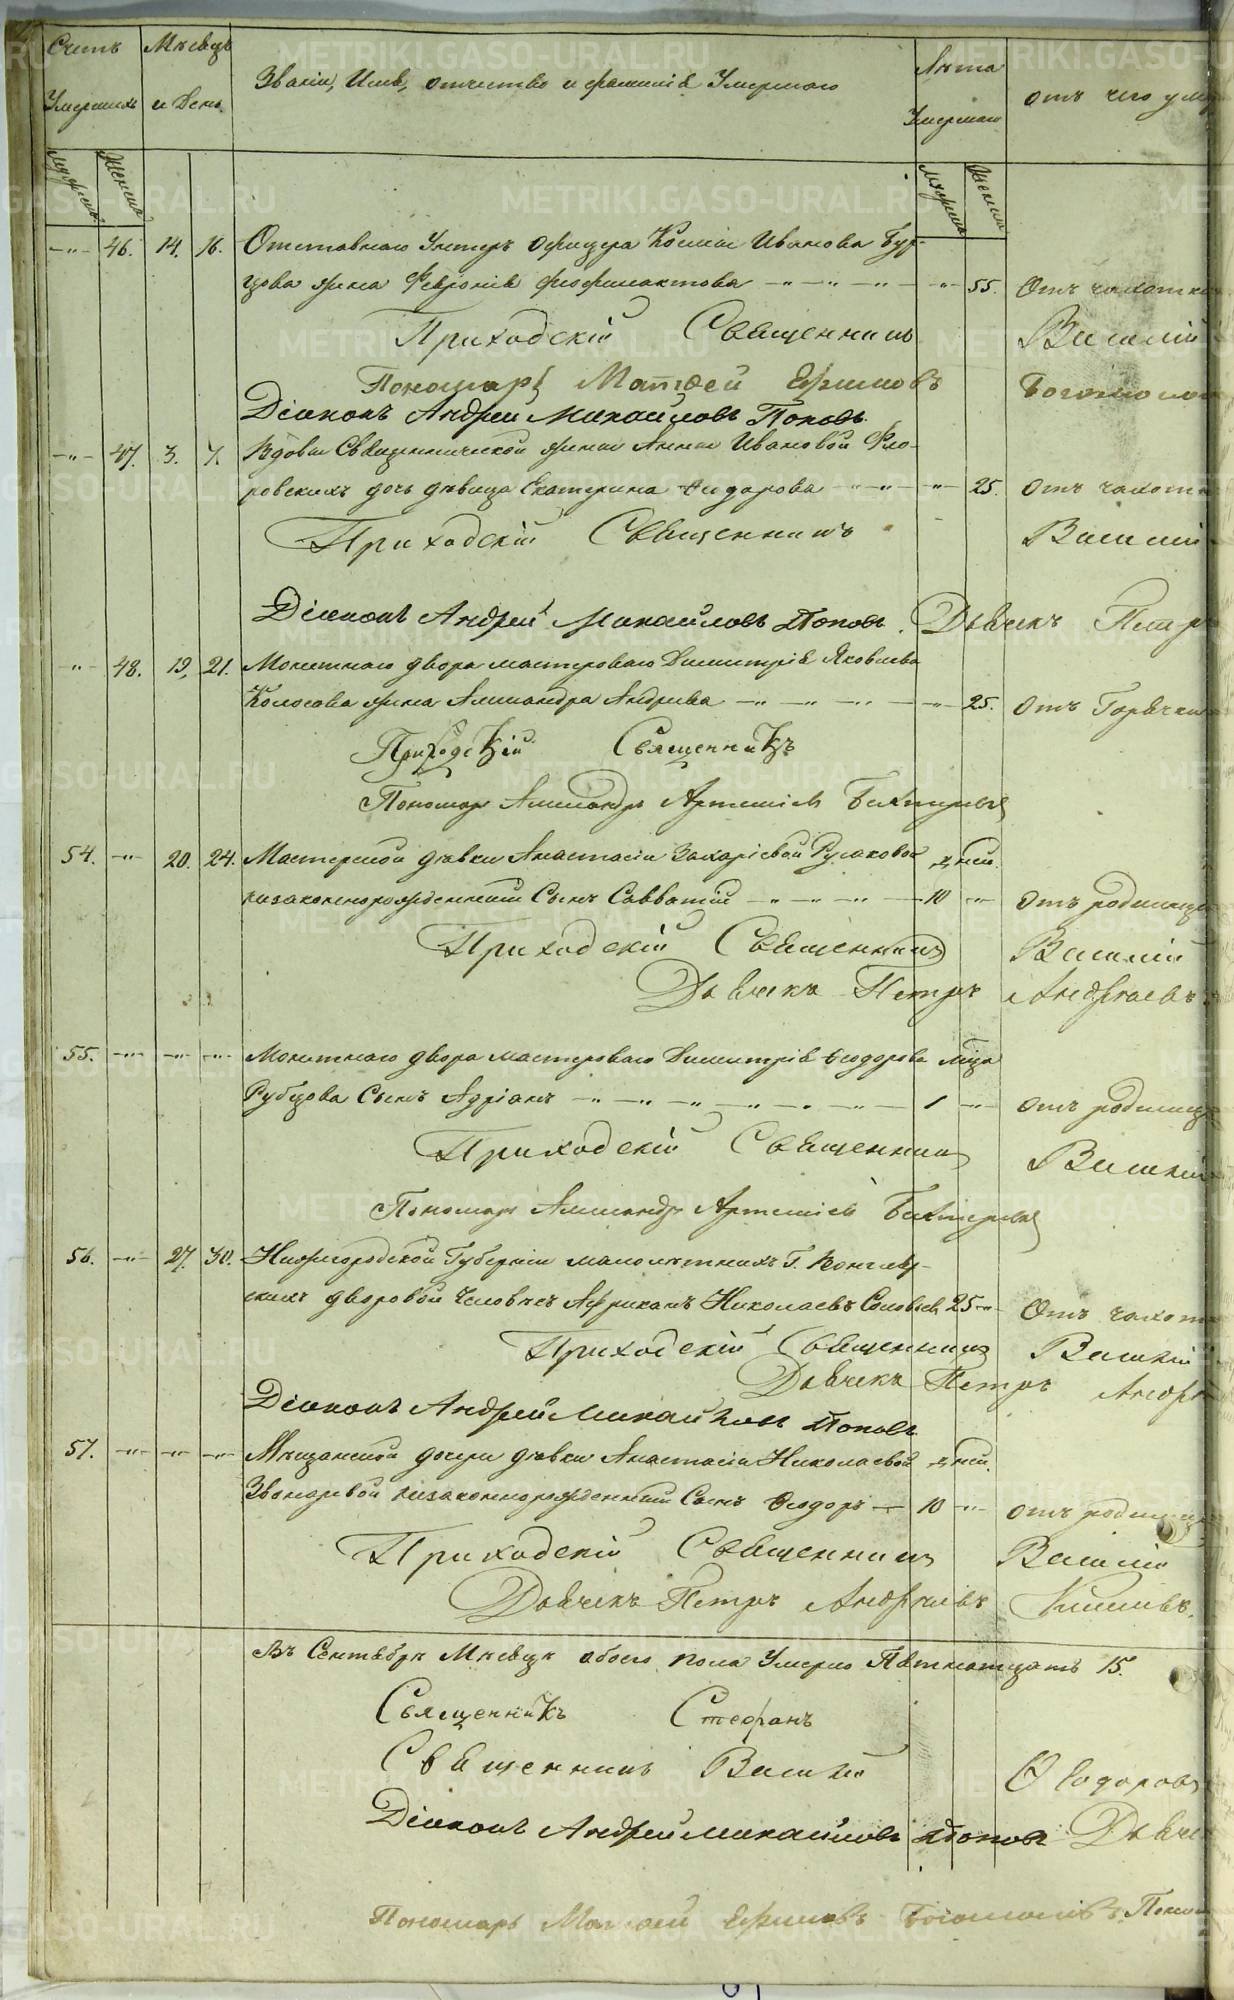 Счетъ Мѣсяцъ Званіе, Имя, отчество и фамилія Умершаго Лѣта отъ чего
Умершихъ и День. Умершаго
46. 14. 16. Отставнаго Унтеръ Офицера Козмы Иванова Бур-
цова жена Февронія Феофилактова 55. Отъ чахотки
Приходскій Священникъ Василій
Пономарь Матѳей Ефимовъ
Діаконъ Андрей Михайловъ Поповъ.
47. 3. 7. Вдовы Священнической жены Анны Ивановой Фло-
ровскихъ дочь дѣвица Екатерина Ѳедорова 25. отъ чахотки
Приходскій Священникъ Василій
Діаконъ Андрей Михайловъ Поповъ. Дьячекъ Петръ
48. 19. 21. Монетнаго двора мастероваго Димитрія Яковлева
Колосова жена Александра Андреева 25. отъ Горячки
Приходскій Священникъ
Пономарь Александръ Артемьевъ
54. 20. 24. Мастерской дѣвки Анастасіи Захаріевой Русаковой дней.
незаконнорожденный Сынъ Савватій 10 отъ родимца
Приходскій Священникъ Василій
Дьячекъ Петръ Андреевъ
55. Монетнаго двора мастероваго Димитрія Ѳеодорова мѣсца
Рубцова Сынъ Адріанъ 1 отъ родимца
Приходскій Священникъ Василій
Пономарь Александръ Артемьевъ
56. 27. 30. Нижегородской Губерніи малолѣтнихъ Г.
дворовой человѣкъ Африканъ Николаевъ Соловьевъ 25 Отъ чахотки
Приходскій Священникъ Василій
Дьячекъ Петръ
Діаконъ Андрей Михайловъ Поповъ
57. Мѣщанской дочери дѣвки Анастасіи Николаевой дней.
Звонаревой незаконнорожденный Сынъ Ѳеодоръ 10 отъ родимца
Приходскій Священникъ Василій
Дьячекъ Петръ Андреевъ
Въ Сентябрѣ Мѣсяцѣ обоего пола Умерло Пятнатцать 15.
Священникъ Стефанъ
Священникъ Василій Ѳеодоровъ
Діаконъ Андрей Михайловъ Поповъ
Пономарь Матѳей Ефимовъ